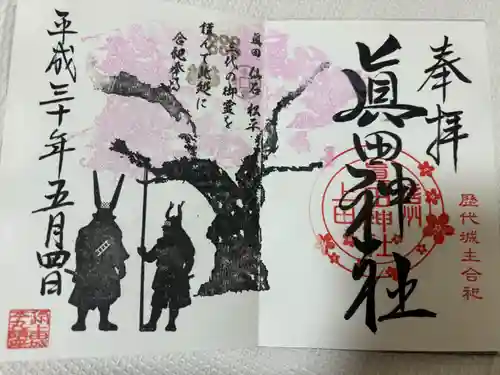 奉拝
歴代城主合祀
眞田神社
眞田 仙石 松平
三代の御霊を
謹んで此処に
合祀奉る
平成三十年五月四日